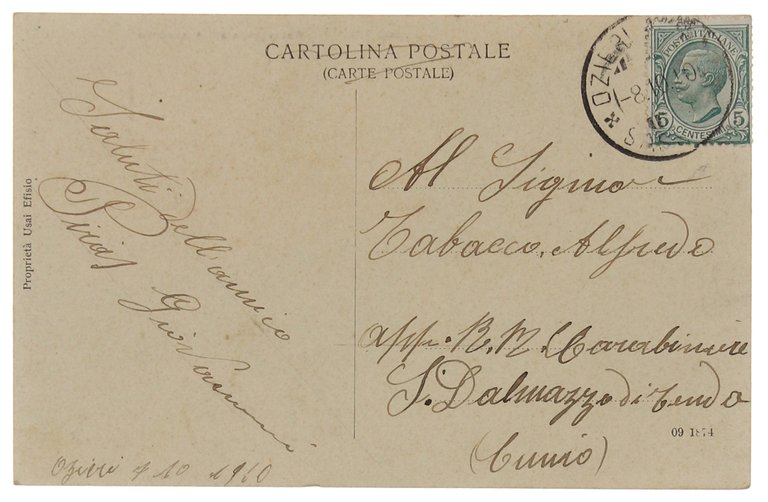 CARTOLINA POSTALE
(CARTE POSTALE)
Proprietà Usai Efisio
Saluti dell'amico
Piras Giovanni
Ozieri 7 10 1910
POSTE ITALIANE
5 5
CENTESIMI
OZIERI
-8.10.10
Al Signor
Tabacco, Alfredo
app. R. R. Carabiniere
S. Dalmazzo di Tenda
(Cuneo)
09 1874